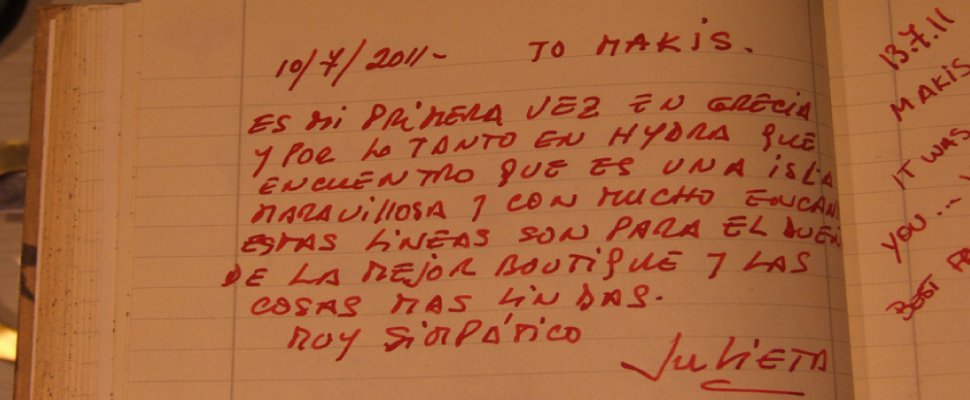 10/7/2011- TO MAKIS.
ES MI PRIMERA VEZ EN GRECIA
Y POR LO TANTO EN HYDRA QUE
ENCUENTRO QUE ES UNA ISLA
MARAVILLOSA Y CON MUCHO ENCAN
ESTAS LINEAS SON PARA EL DUEÑ
DE LA MEJOR BOUTIQUE Y LAS
COSAS MAS LINDAS.
MUY SIMPÁTICO
JULIETA
13.7.11
MAKIS
IT WAS
YOU...
BEST